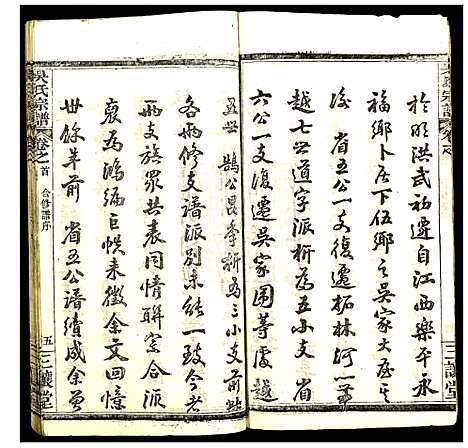 於明洪武初遷自江西樂平永
福鄉卜居下伍鄉之吳家大屋之
後省五公一支復遷柘林河一帶
越七世道字派析為五小支省
六公一支復遷吳家圍等處越
五世鵠公畏孝析為三小支前此
各兩支譜派別未能一致今者
兩支族眾共表同情聯宗合族
裒為鴻編巨帙來徵余文回憶
廿餘年前省五公譜續成余曾
吳氏宗譜
卷之首
合修譜序
五
三讓堂
三讓堂